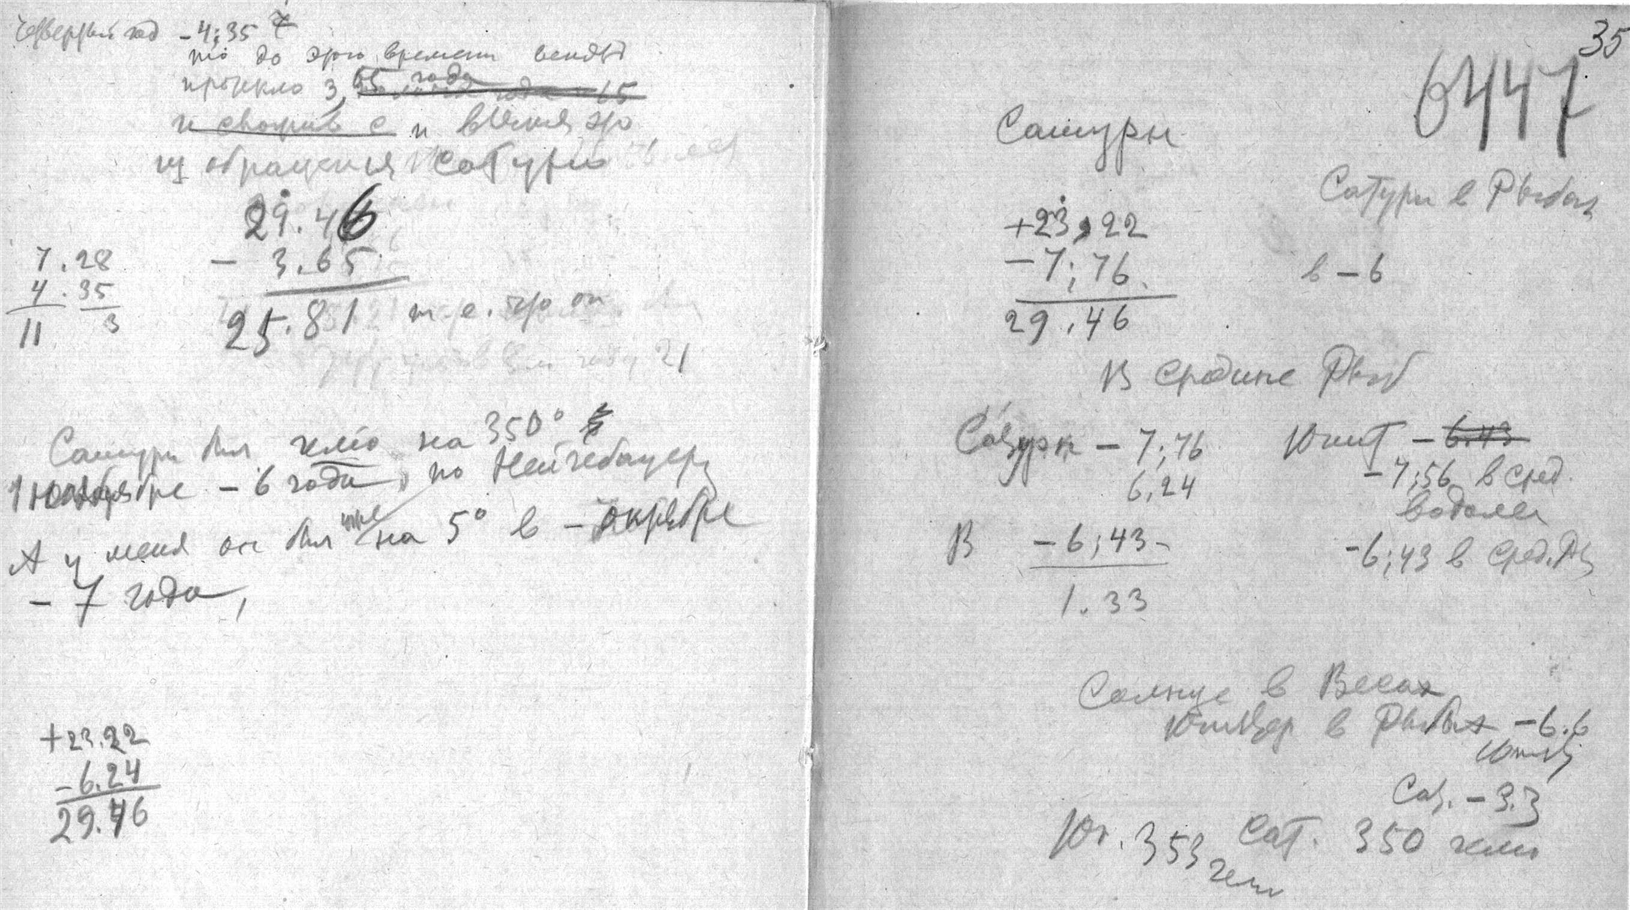 -4;35
что до этого времени
протекло 3,65 года
и время его
обращения Сатурн
29.46
- 3.65
25.81 т.е. что он
7.28
4.35
11 3
21
Сатурн был гелио на 350°
1 ноября -6 года, по Нейгебауеру
А у меня он был уже на 5° в - октябре
- 7 года,
+23.22
-6.24
29.46
35
6447
Сатурн
Сатурн в Рыбах
+23,22
-7;76.
29.46
в -6
В средине Рыб
Сатурн - 7;76
6,24
В -6;43-
1.33
Юпит -6.43
-7;56 в сред.
водолея
-6;43 в сред. Рыб
Солнце в Весах
Юпитер в Рыбах -6.6
Сат. -3.3
Юп. 353 гели
Сат. 350 гели